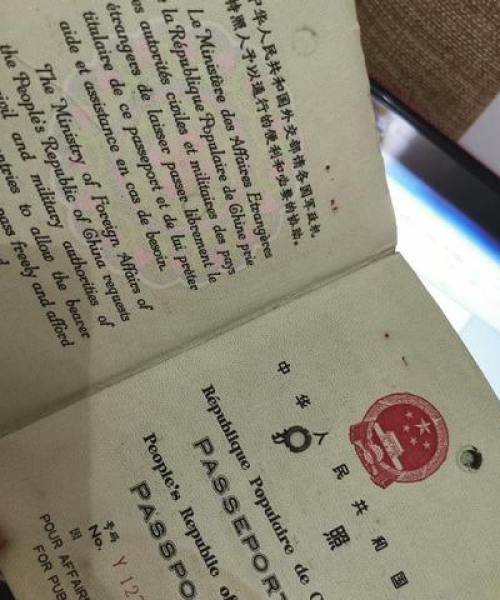 中华人民共和国外交部请各国军政机
特照人予以通行的便利和必要的协助。
Le Ministère des Affaires Etrangères
la République Populaire de Chine prie
autorités civiles et militaires des pays
étrangers de laisser passer librement le
titulaire de ce passeport et de lui prêter
aide et assistance en cas de besoin.
The Ministry of Foreign Affairs of
the People's Republic of China requests
civil and military authorities of
to allow the bearer
pass freely and afford
中华人民共和国
照
République Populaire de
PASSEPORT
People's Republic of
号码
No. Y 12
因
POUR
FOR